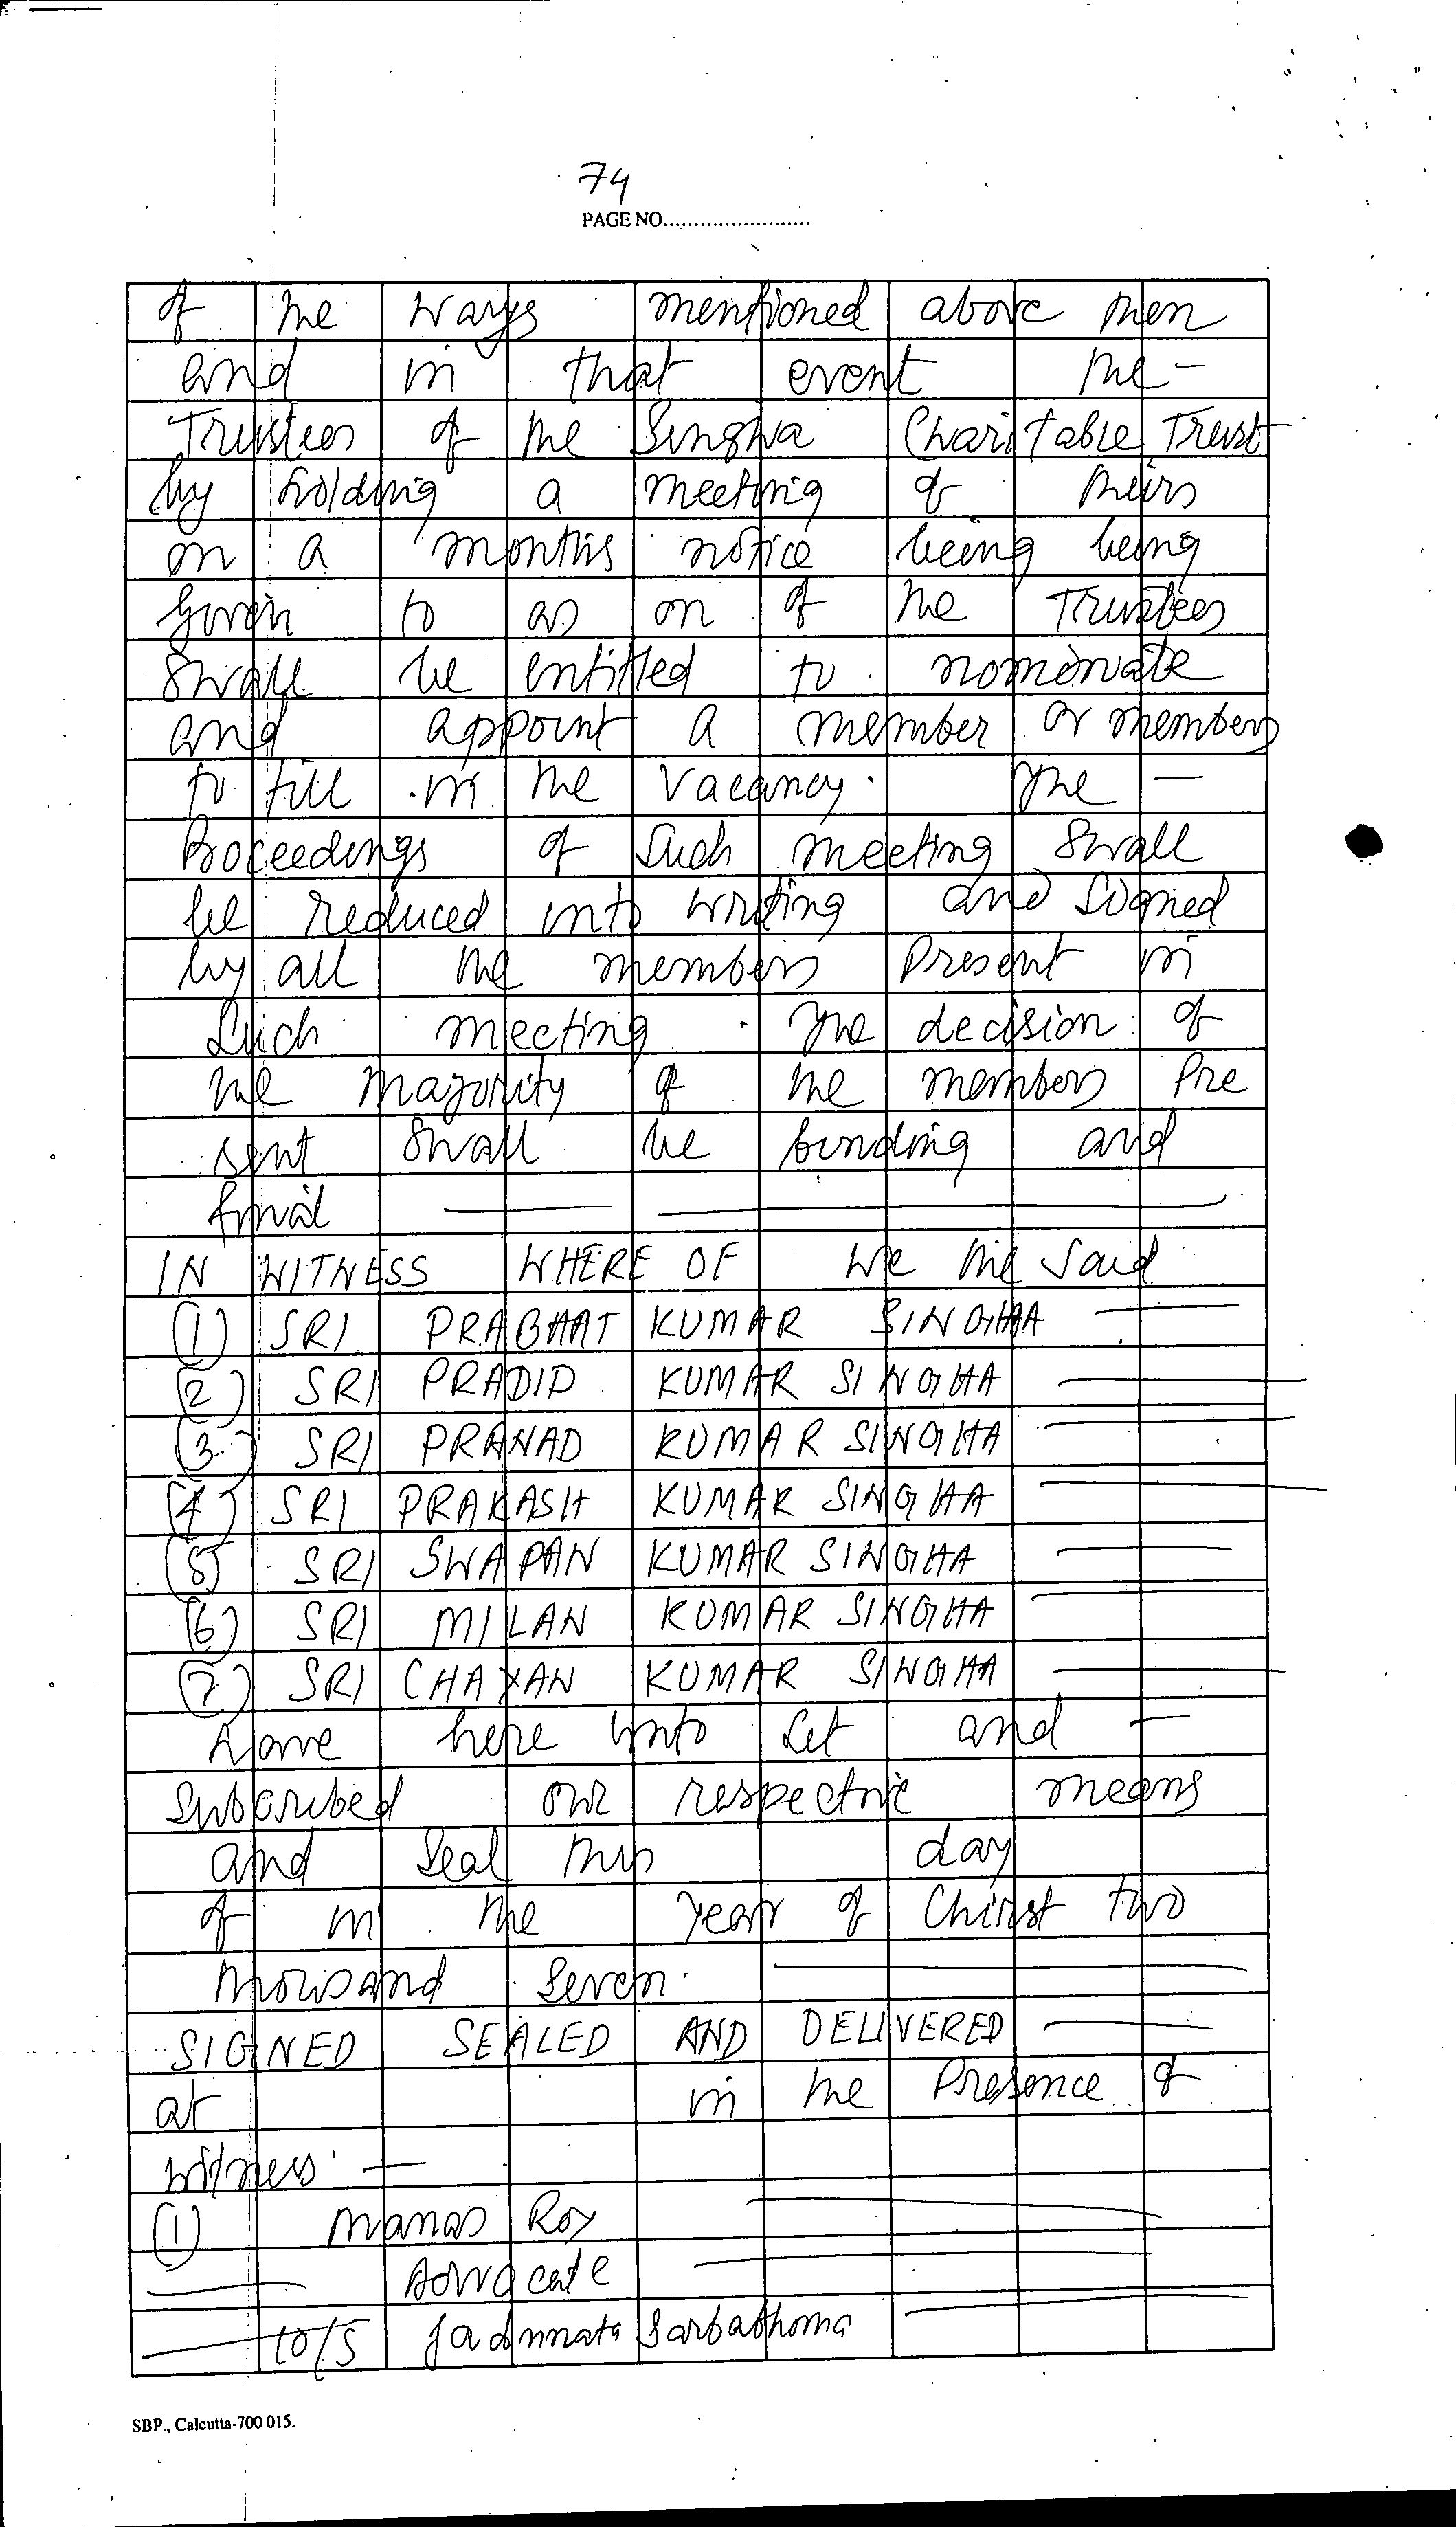 74
PAGE NO.........................
of the ways mentioned above then
and in that event the -
Trustees of the Singha Charitable Trust
by holding a meeting of theirs
on a months notice being being
given to as on of the Trustees
shall be entitled to nominate
and appoint a member or members
to fill in the vacancy. The —
Proceedings of such meeting shall
be reduced into writing and signed
by all the members present in
such meeting. The decision of
the majority of the members Pre
sent shall be binding and
final
IN WITNESS WHERE OF we the said
(1) SRI PRABHAT KUMAR SINGHA
(2) SRI PRADIP KUMAR SINGHA
(3) SRI PRANAD KUMAR SINGHA
(4) SRI PRAKASH KUMAR SINGHA
(5) SRI SWAPAN KUMAR SINGHA
(6) SRI MILAN KUMAR SINGHA
(7) SRI CHAYAN KUMAR SINGHA
have here unto set and —
subcribed our respective means
and seal this day
of in the year of Chirst two
thousand seven.
SIGNED SEALED AND DELIVERED
at in the Presence of
witness. —
(1) Manas Roy
Advocate
10/5 Sarbabhoma
SBP., Calcutta-700 015.